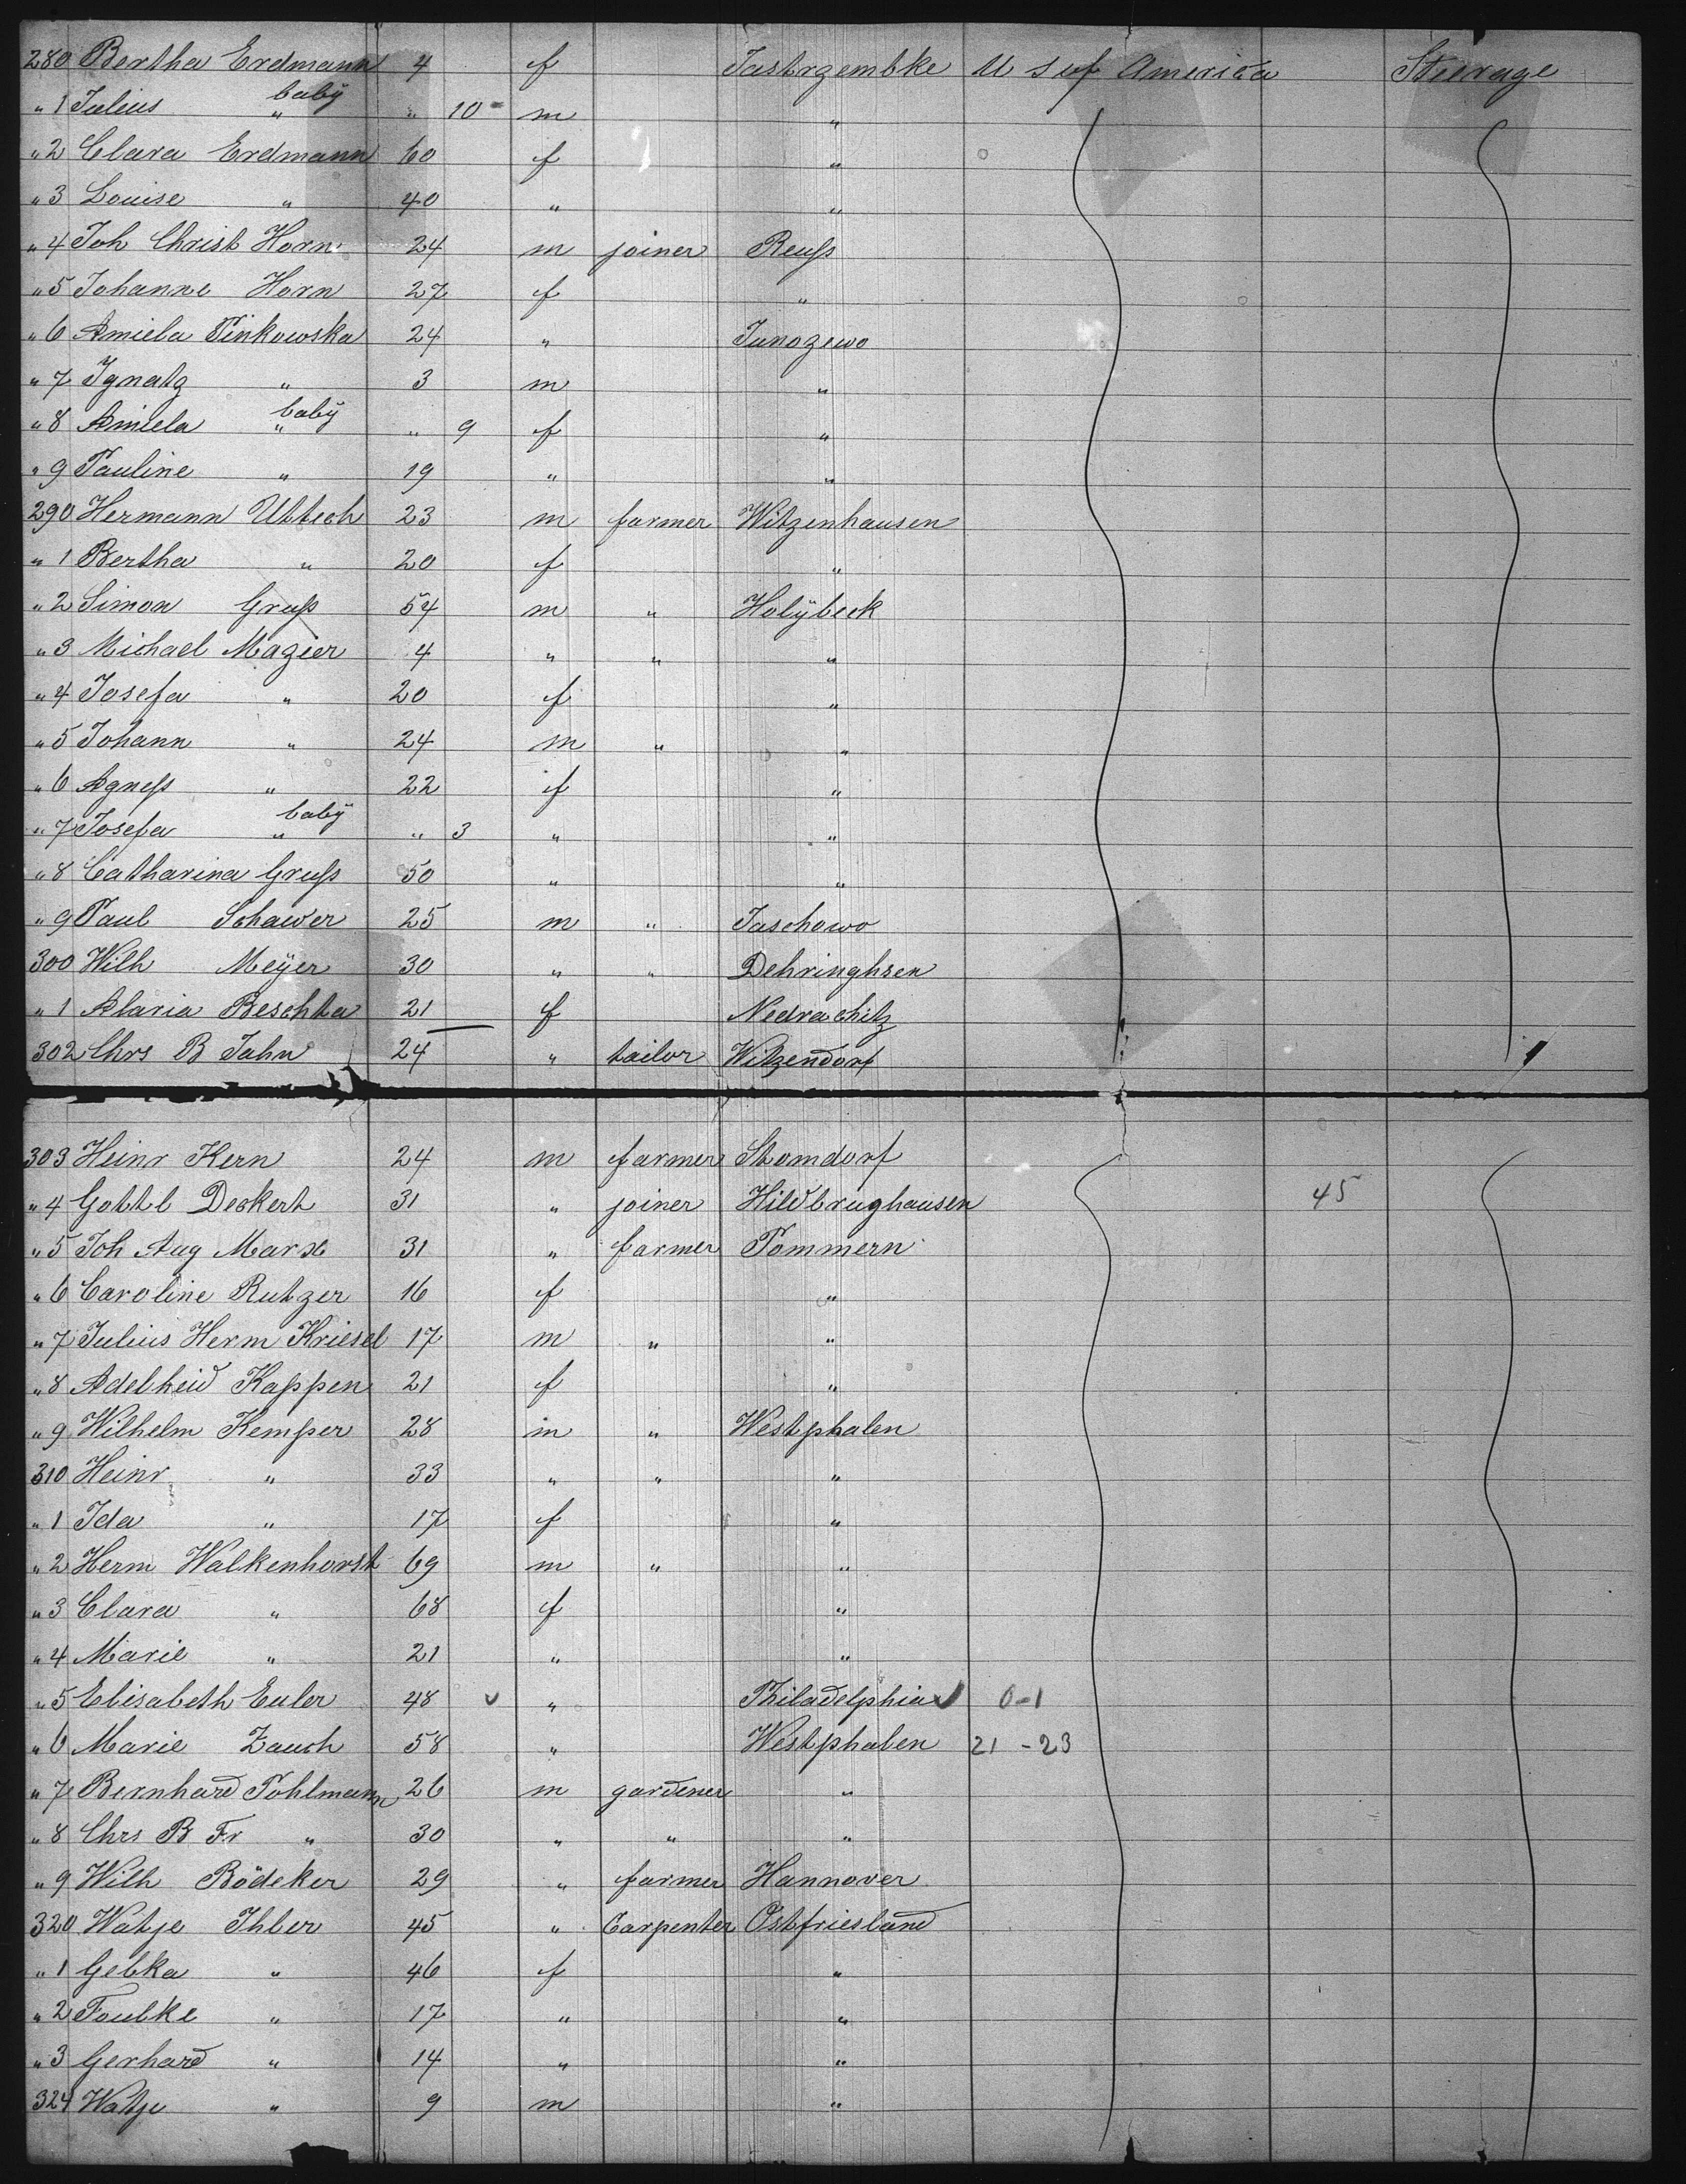 280 Bertha Erdmann 4 f Jastrzembke U S of America Steerage
" 1 Julius " baby " 10 m "
" 2 Clara Erdmann 60 f "
" 3 Louise " 40 " "
" 4 Joh Christ Horn 24 m joiner Reuſs
" 5 Johanne Horn 27 f "
" 6 Amiela Pinkowska 24 " Janozewo
" 7 Ignatz " 3 m "
" 8 Amiela " baby " 9 f "
" 9 Pauline " 19 " "
290 Hermann Uttech 23 m farmer Witzenhausen
" 1 Bertha " 20 f "
" 2 Simon Gruſs 54 m " Holÿbeck
" 3 Michael Magier 4 " " "
" 4 Josefa " 20 f "
" 5 Johann " 24 m " "
" 6 Agneſs " 22 f "
" 7 Josefa " baby " 3 " "
" 8 Catharina Gruſs 50 " "
" 9 Paul Schawer 25 m " Jaschowo
300 Wilh Meÿer 30 " " Dehringhsen
" 1 Alaria Beschta 21 f Nedrachitz
302 Chrs B Jahn 24 " tailor Witzendorf
303 Heinr Kern 24 m farmer Stomdorf
" 4 Gottl Deckert 31 " joiner Hildbrughausen 45
" 5 Joh Aug Marx 31 " farmer Pommern
" 6 Caroline Rutzer 16 f "
" 7 Julius Herm Kriesel 17 m " "
" 8 Adelheid Kappen 21 f "
" 9 Wilhelm Kemper 28 m " Westphalen
310 Heinr " 33 " " "
" 1 Ida " 17 f "
" 2 Herm Walkenhorst 69 m " "
" 3 Clara " 68 f "
" 4 Marie " 21 " "
" 5 Elisabeth Euler 48 " Philadelphia 0-1
" 6 Marie Zauch 58 " Westphalen 21 - 23
" 7 Bernhard Pohlmann 26 m gardener "
" 8 Chrs B Fr " 30 " " "
" 9 Wilh Bödeker 29 " farmer Hannover
320 Watje Ihler 45 " Carpenter Ostfriesland
" 1 Gebka " 46 f "
" 2 Foulke " 17 " "
" 3 Gerhard " 14 " "
324 Watje " 9 m "